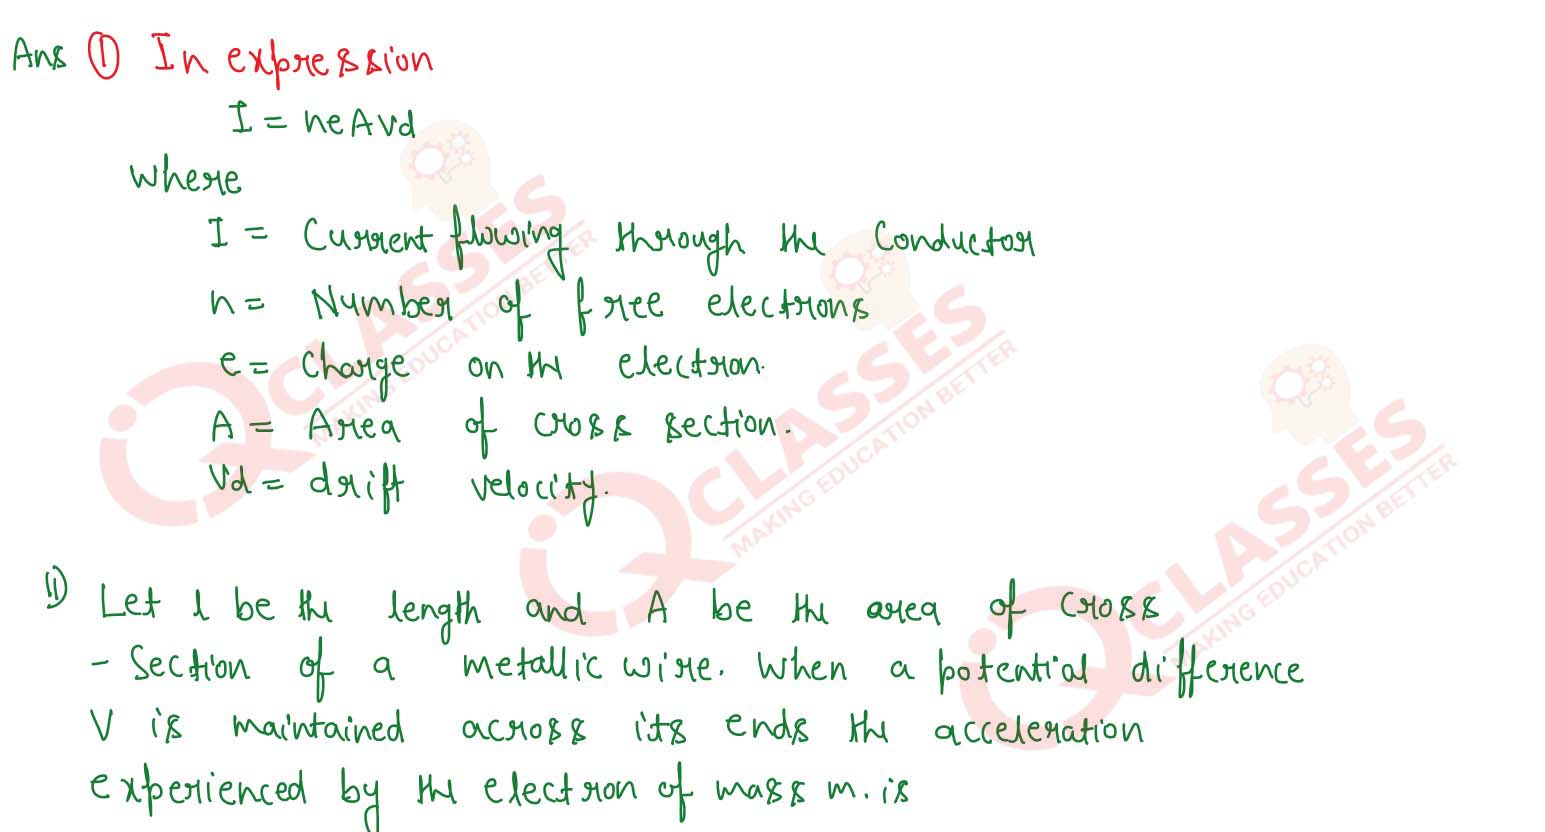 Ans ① In expression
I = neAvd
where
I = Current flowing through the Conductor
n = Number of free electrons
e = Charge on the electron.
A = Area of cross section.
Vd = drift velocity.
ii) Let l be the length and A be the area of cross
- Section of a metallic wire. When a potential difference
V is maintained across its ends the acceleration
experienced by the electron of mass m. is
iQ CLASSES
MAKING EDUCATION BETTER
iQ CLASSES
MAKING EDUCATION BETTER
iQ CLASSES
MAKING EDUCATION BETTER